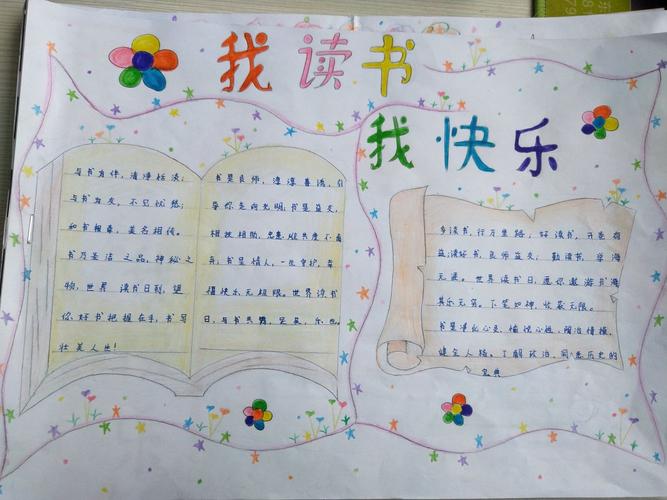 我读书
我快乐
与书为伴,清净恬淡;
与书为友,不见忧愁;
和书相拥,美名相传。
书乃圣洁之品,神秘之
物,世界读书日到,望
你好书把握在手,书写
壮美人生!
书是良师,谆谆善诱,引
导你走向光明;书是益友,
相扶相助,患难
弃;书是情人,一生守护,幸
福快乐无极限。世界读书
日,与书共舞,
多读书,行万里路;好读书,开卷有
益;读好书,良师益友;勤读书,学海
无涯。世界读书日,愿你遨游书海
其乐无穷。下笔如神,收获无限。
书是净化心灵,愉悦心性,陶冶情操,
健全人格。了解政治,洞悉历史的
宝典